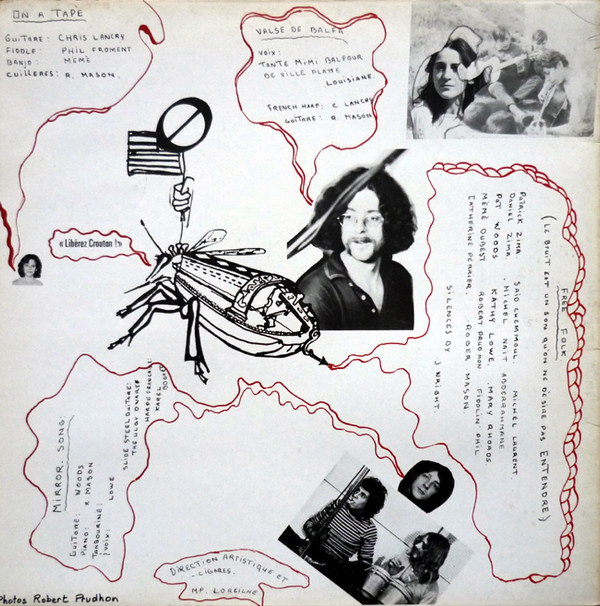 ON A TAPE
GUITARE: CHRIS LANCRY
FIDDLE: PHIL FROMENT
BANJO: MÉMÉ
CUILLÈRES: R. MASON.
VALSE DE BALFA
VOIX:
TONTE MIMI BALFOUR
DE VILLE PLATTE
LOUISIANE.
FRENCH HARP: C LANCRY
GUITARE: R. MASON
« Libérez Crouton ! »
FREE FOLK
(LE BRUIT EST UN SON QU'ON NE DÉSIRE PAS ENTENDRE)
PATRICK ZIMA. SAID CHEMMOUL. MICHEL LAURENT
DANIEL ZIMA. MICHEL NAIT ABDERRAHMANE
PAT WOODS KATHY LOWE. MARY RHOADS
MÉMÉ DUBEST ROBERT PRUDHON FIDOLIN' PHIL
CATHERINE PERRIER. ROGER MASON
SILENCES BY J WRIGHT.
MIRROR SONG
GUITARE: WOODS
PIANO: R. MASON
TAMBOURINE: LOWE
VOIX:
SLIDE STEEL GUITARE:
HARPE FRANÇAISE:
DIRECTION ARTISTIQUE ET
CIGARES.
Photos Robert Prudhon